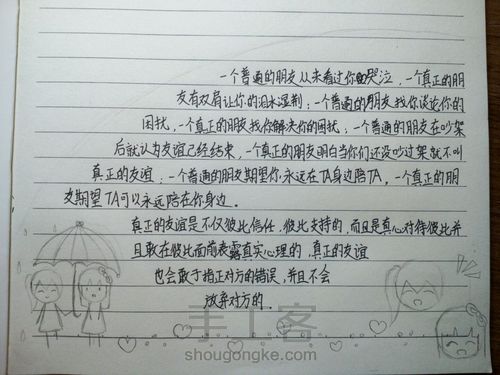 一个普通的朋友从未看过你的哭泣，一个真正的朋
友有双肩让你的泪水湿刺；一个普通的朋友找你谈论你的
困扰，一个真正的朋友找你解决你的困扰；一个普通的朋友在吵架
后就认为友谊已经结束，一个真正的朋友明白当你们还没吵过架就不叫
真正的友谊；一个普通的朋友期望你永远在TA身边陪TA，一个真正的朋
友期望TA可以永远陪在你身边．
真正的友谊是不仅彼此信任，彼此支持的，而且是真心对待彼此并
且敢在彼此面前表露真实心理的，真正的友谊
也会敢于指正对方的错误，并且不会
放弃对方的．
手工客
shougongke.com